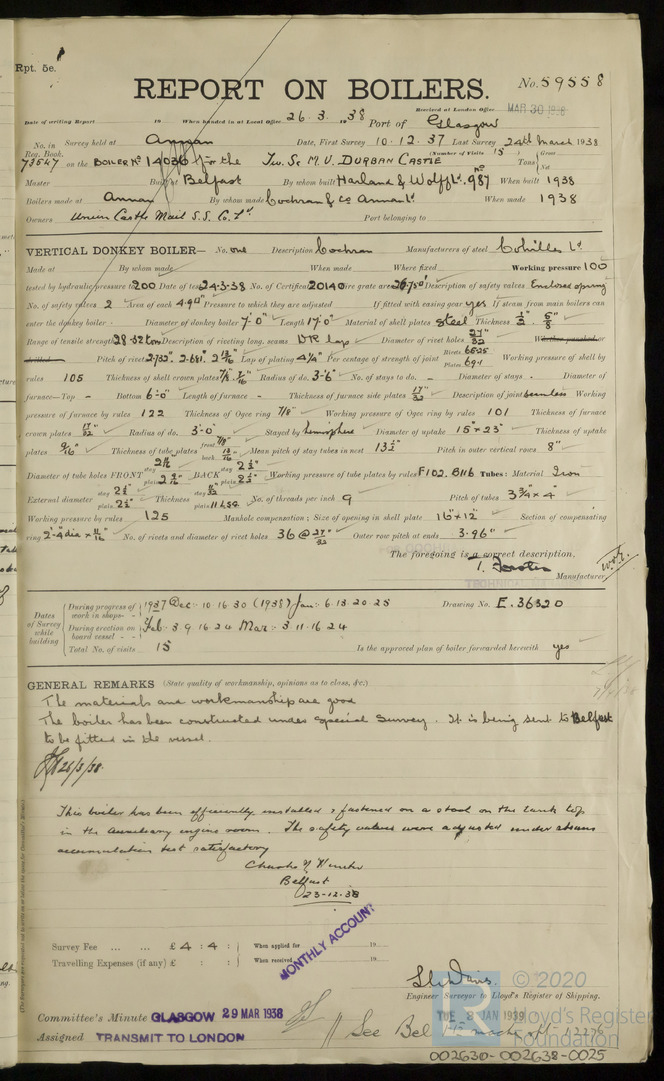 Rpt. 5e.
REPORT ON BOILERS.
No. 59558
Received at London Office MAR 30 1938
Date of writing Report 19 When handed in at Local Office 26.3.1938 Port of Glasgow
No. in Reg. Book. Survey held at Annan Date, First Survey 10.12.37 Last Survey 24th March 1938
(Number of Visits 15)
73547 on the BOILER No 14036 for the Tw. Sc M.V. DURBAN CASTLE Tons { Gross Net
Master Built at Belfast By whom built Harland & Wolff Ld. No 987 When built 1938
Boilers made at Annan By whom made Cochran & Co Annan Ld When made 1938
Owners Union Castle Mail S.S. Co. Ld Port belonging to
VERTICAL DONKEY BOILER— No. one Description Cochran Manufacturers of steel Colvilles Ld
Made at By whom made When made Where fixed Working pressure 100
tested by hydraulic pressure to 200 Date of test 24-3-38 No. of Certificate 20140 Fire grate area 26.75 Description of safety valves Enclosed spring
No. of safety valves 2 Area of each 4.90" Pressure to which they are adjusted If fitted with easing gear yes If steam from main boilers can
enter the donkey boiler - Diameter of donkey boiler 7'-0" Length 17'-0" Material of shell plates Steel Thickness 1/2" . 5/8"
Range of tensile strength 28-32 tons Description of riveting long. seams D.R. lap Diameter of rivet holes 27/32" Whether punched or
drilled Pitch of rivets 2.732" 2.681" 2 13/16" Lap of plating 4 1/4" Per centage of strength of joint Rivets 66.25 Plates 69.1 Working pressure of shell by
rules 105 Thickness of shell crown plates Radius of do. 3'-6" No. of stays to do. - Diameter of stays - Diameter of
furnace—Top - Bottom 6'-0" Length of furnace - Thickness of furnace side plates 17/32" Description of joint seamless Working
pressure of furnace by rules 122 Thickness of Ogee ring 7/8" Working pressure of Ogee ring by rules 101 Thickness of furnace
crown plates 17/32" Radius of do. 3'-0" Stayed by hemisphere Diameter of uptake 15" x 23" Thickness of uptake
plates 9/16" Thickness of tube plates front 7/8" back 13/16" Mean pitch of stay tubes in nest 13 1/2" Pitch in outer vertical rows 8"
Diameter of tube holes FRONT stay 2 9/16" plain 2 9/16" BACK stay 2 1/2" plain 2 1/2" Working pressure of tube plates by rules F102. B116 Tubes: Material Iron
External diameter stay 2 1/2" plain 2 1/2" Thickness stay 9/32" plain 11 LSG No. of threads per inch 9 Pitch of tubes 3 3/4" x 4"
Working pressure by rules 125 Manhole compensation; Size of opening in shell plate 16" x 12" Section of compensating
ring 2'-4" dia x 11/16" No. of rivets and diameter of rivet holes 36 @ 27/32 Outer row pitch at ends 3.96"
The foregoing is a correct description,
T. Forster Manufacturer
Dates of Survey while building
During progress of work in shops - - 1937 Dec:- 10.16.30 (1938) Jan:- 6.13.20.25
During erection on board vessel - - Feb:- 3.9.16.24 Mar:- 3.11.16.24
Total No. of visits 15
Drawing No. E.36320
Is the approved plan of boiler forwarded herewith yes
GENERAL REMARKS (State quality of workmanship, opinions as to class, &c.)
The materials and workmanship are good
The boiler has been constructed under special survey. It is being sent to Belfast
to be fitted in the vessel.
25/3/38.
This boiler has been efficiently installed & fastened on a stool on the tank top
in the auxiliary engine room. The safety valves were adjusted under steam
accumulation test satisfactory
Belfast
23-12-38
Survey Fee ... ... £ 4 : 4 : When applied for 19
Travelling Expenses (if any) £ : : When received 19
MONTHLY ACCOUNT
Engineer Surveyor to Lloyd's Register of Shipping.
Committee's Minute GLASGOW 29 MAR 1938
TUE 3 JAN 1939
Assigned TRANSMIT TO LONDON
See Bel
© 2020
Lloyd's Register
Foundation
002630-002638-0025